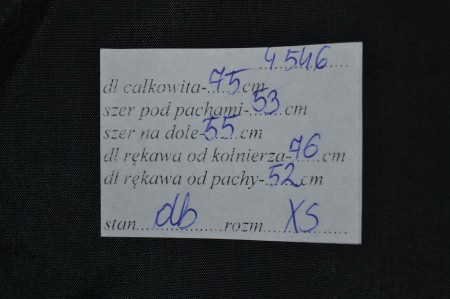 4546
dł całkowita-75cm
szer pod pachami-53cm
szer na dole-55cm
dł rękawa od kołnierza-76cm
dł rękawa od pachy-52cm
stan db rozm XS